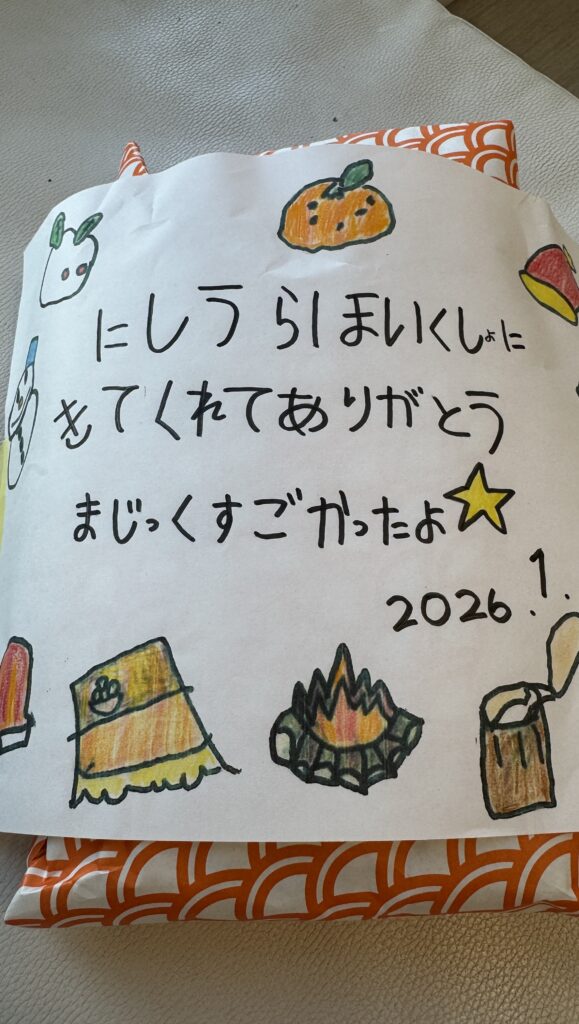 にしうらほいくしょに
きてくれてありがとう
まじっくすごかったよ
2026.1.